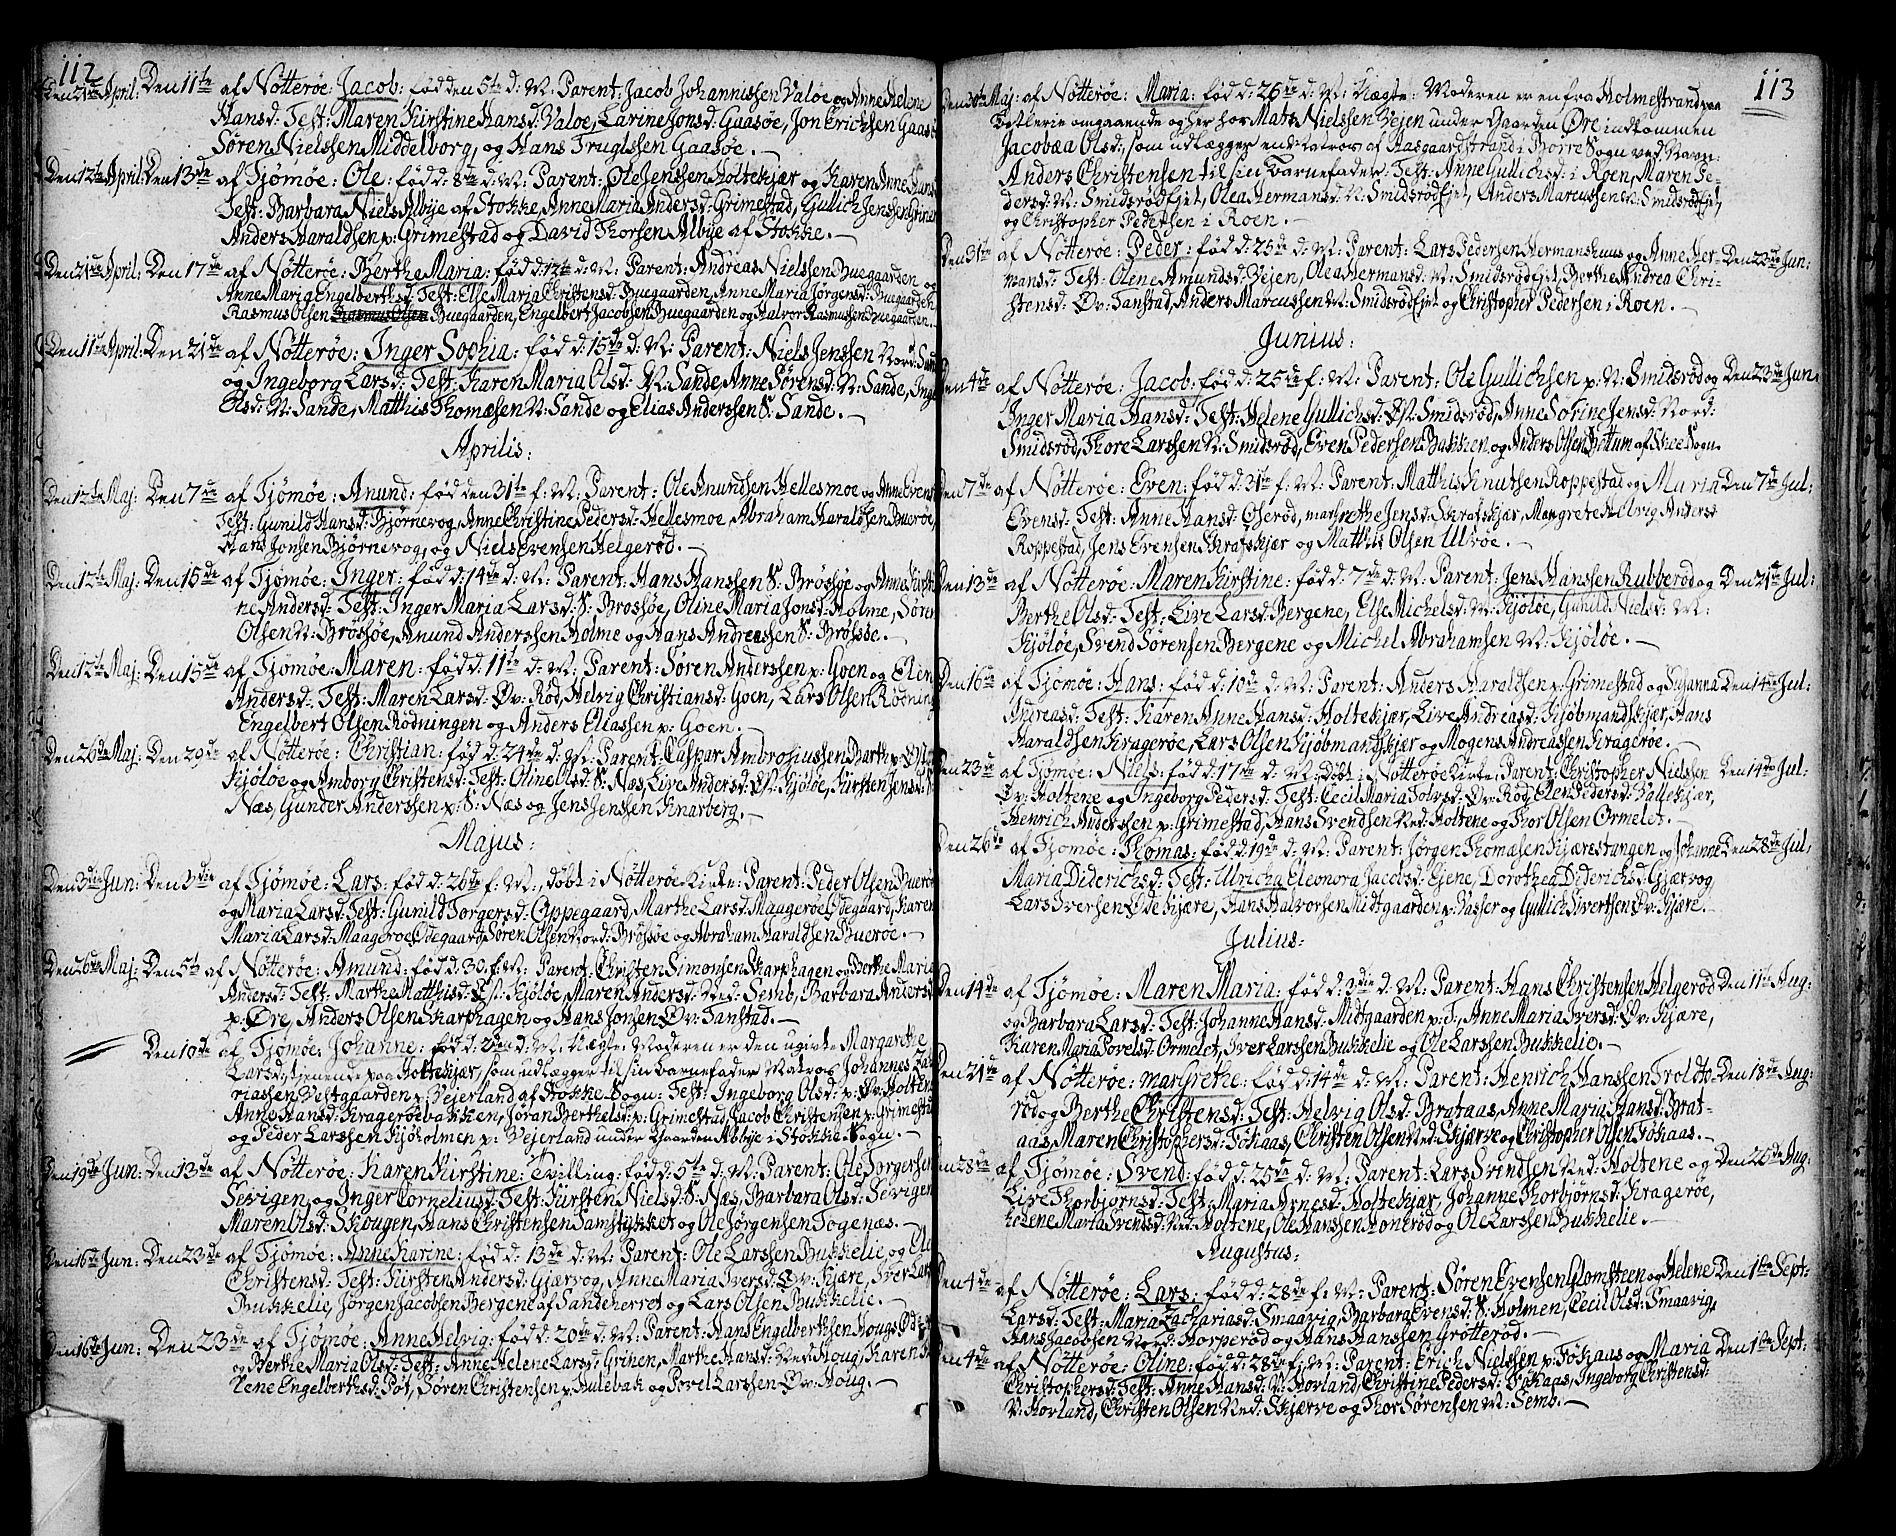 112
Den 21de April: Den 11te af Nötteröe: Jacob: föd den 5te d: M: Parent: Jacob Johannissen Valöe og Anne Helene
Hansd: Test: Maren Kirstine Hansd: Valöe, Larine Jonsd: Gaasöe, Jon Erichsen Gaasöe
Sören Nielssen Middelborg, og Hans Truglssen Gaasöe.
Den 12te April: Den 13de af Tjömöe: Ole: föd d: 8de d: M: Parent: Ole Jenssen Holtekjær og Karen Anne Hans
Test: Barbara Niels Albÿe af Stokke, Anne Maria Andersd: Grimestad, Gullich Jenssen Grimes
Anders Haraldsen p: Grimestad og David Thorsen Albÿe af Stokke.
Den 21de April: Den 17de af Nötteröe: Berthe Maria: föd d: 12te d: M: Parent: Andreas Nielssen Buegaarden og
Anne Maria Engelberthsd: Test: Else Maria Christensd: Buegaarden, Anne Maria Jörgensd: Buegaarden
Rasmus Olsen Rasmus Olsen Buegaarden, Engelbert Jacobsen Buegaarden og Halvor Rasmussen Buegaarden.
Den 11te April: Den 21de af Nötteröe: Inger Sophia: föd d: 15de d: M: Parent: Niels Jenssen Nord: Sande
og Ingeborg Larsd: Test: Karen Maria Olsd: N: Sande, Anne Sörensd: N: Sande, Inge
Olsd: N: Sande, Matthis Thomæsen N: Sande og Elias Anderssen S: Sande.
Aprilis:
Den 12te Maj: Den 7de af Tjömöe: Anund: föd den 31te f: M: Parent: Ole Anundsen Hellesmoe og Anne Evens
Test: Gunild Hansd: Björnevog, Anne Christine Pedersd: Hellesmoe, Abraham Haraldsen Bueröe,
Hans Jonsen Björnevog, og Niels Evensen Helgeröd.
Den 12te Maj: Den 15de af Tjömöe: Inger: föd d: 14de d: M: Parent: Hans Hanssen S: Brösöe og Anna Kirsti
ne Andersd: Test: Inger Maria Larsd: S: Brossöe, Oline Maria Jonsd: Holme, Sören
Olsen N: Brössöe, Anund Anderssen Holme og Hans Andreassen S: Brössöe.
Den 12te Maj: Den 15de af Tjömöe: Maren: föd d: 11te d: M: Parent: Sören Anderssen p: Goen og Elen
Andersd: Test: Maren Larsd: Öv: Röd, Helvig Christiansd: Goen, Lars Olsen Rödning
Engelbert Olsen Rödningen og Anders Eliassen p: Goen.
Den 26de Maj: Den 29de af Nötteröe: Christian: föd d: 24de d: M: Parent: Caspar Ambrosiussen Barth p: Öst
Kjölöe og Amborg Christensd: Test: Oline Olsd: S: Næs, Live Andersd: Öst: Kjölöe, Kirsten Jensd: S:
Næs, Gunder Anderssen p: S: Næs og Jens Jenssen Knarberg.
Majus:
Den 3die Jun: Den 3die af Tjömöe: Lars: föd d: 26de f: M:, döbt i Nötteröe Kirke: Parent: Peder Olsen Bueröe
og Maria Larsd: Test: Gunild Torgersd: Oppegaard, Marthe Larsd: Maageröe Ödegaard, Karen
Maria Larsd: Maageröe Ödegaard, Sören Olsen Nord: Brösöe og Abraham Haraldsen Bueröe.
Den 26de Maj: Den 5te af Nötteröe: Amund: föd d: 30. f: M: Parent: Christen Simonsen Skarphagen og Berthe Maria
Andersd: Test: Marthe Matthisd: Öst: Kjölöe, Maren Andersd: Ned: Semb, Barbara Andersd
p: Öre, Anders Olsen Skarphagen og Hans Jonsen Öv: Tanstad.
Den 10de af Tjömöe: Johanne: föd d: 2den d: M: Uægte: Moderen er den ugivte Margarethe
Larsd, tjenende paa Holtekjær, som udlægger til sin Barnefader Matros Johannes Zacha
riassen Vestgaarden p: Vejerland af Stokke Sogn: Test: Ingeborg Olsd: p: Öv: Holtene
Anne Hansd: Krageröebakken, Jöran Berthelsd: p: Grimestad, Jacob Christensen p: Grimestad
og Peder Larssen Kjöholmen p: Vejerland under Gaarden Albÿe i Stokke Sogn.
Den 19de Jun: Den 13de af Nötteröe: Karen Kirstine: Tvilling: föd d: 5te d: M: Parent: Ole Torgersen
Sevigen, og Inger Corneliusd: Test: Kirsten Nielsd: S: Næs, Barbara Olsd: Sevigen
Maren Olsd: Skougen, Hans Christensen Tamstÿkket og Ole Jörgensen Togenæs.
Den 16de Jun: Den 23de af Tjömöe: Anne Karine: föd d: 13de d: M: Parent: Ole Larssen Bukkelie og
Christensd: Test: Kirsten Andersd: Gjærvog, Anne Maria Iversd: Öv: Kjære, Iver Lars
Bukkelie, Jörgen Jacobsen Bergene af Sandeherret og Lars Olsen Bukkelie.
Den 16de Jun: Den 23de af Tjömöe: Anne Helvig: föd d: 20de d: M: Parent: Hans Engelberthsen Hougs Öde
og Berthe Maria Olsd: Test: Anne Helene Larsd: Grinen, Marthe Hansd: Ned: Houg, Karen
Lene Engelberthsd: Pöt, Sören Christensen p: Hulebak og Povel Larssen Öv: Houg.
113
Den 30te Maj: af Nötteröe: Maria: föd d: 26de d: M: Uægte: Moderen er en fra Holmestrand paa
Betlerie omgaaende og her hos Mats Nielssen Vejen under Gaarden Öre indkommen
Jacobæa Olsd:, som udlægger en Matros af Aasgaardstrand i Borre Sogn ved Navn:
Anders Christensen til sin Barnefader: Test: Anne Gullichsd: i Roen, Maren Pe-
dersd: N: Smidsröd Ejet, Olea Hermansd: N: Smidsröd Ejet, Anders Marcussen N: Smidsröd Ejet,
og Christopher Pedersen i Roen.
Den 31te af Nötteröe: Peder: föd d: 25de d: M: Parent: Lars Pedersen Hermanshuus og Anne Her- Den 23de Jun:
mansd: Test: Olene Amundsd: Vejen, Olea Hermansd: N: Smidsröd Ejet, Berthe Andrea Chri-
stensd: Öv: Tanstad, Anders Marcussen N: Smidsröd Ejet og Christopher Pedersen i Roen.
Junius:
Den 4de af Nötteröe: Jacob: föd d: 25de f: M: Parent: Ole Gullichsen p: N: Smidsröd og Den 23de Jun:
Inger Maria Hansd: Test: Helene Gullichsd: Öst: Smidsröd, Anne Sorine Jensd: Nord:
Smidsröd, Thore Larssen N: Smidsröd, Even Pedersen Bakken og Anders Olsen Bittum af Skee Sogn.
Den 7de af Nötteröe: Even: föd d: 31te f: M: Parent: Matthis Knutsen Roppestad og Maria Den 7de Jul:
Evensd: Test: Anne Hansd: Oseröd, margrethe Jensd: Skrafskjær, Margrete Helvig Andersd
Roppestad, Jens Evensen Skrafskjær og Matthis Olsen Ulvöe.
Den 13de af Nötteröe: Maren Kirstine: föd d: 7de d: M: Parent: Jens Hanssen Rubberöd og Den 21de Jul:
Berthe Olsd: Test: Live Larsd: Bergene, Else Michelsd: N: Kjölöe, Gunild Nielsd: N:
Kjölöe, Svend Sörensen Bergene og Michel Abrahamsen N: Kjölöe.
Den 16de af Tjömöe: Hans: föd d: 10de d: M: Parent: Anders Haraldsen p: Grimestad og Susanna Den 14de Jul:
Andreasd: Test: Karen Anne Hansd: Holtekjær, Live Andreasd: Kjöbmandskjær, Hans
Haraldsen Krageröe, Lars Olsen Kjöbmandskjær og Mogens Andreassen Krageröe.
Den 23de af Tjömöe: Niels: föd d: 17de d: M: Döbt i Nötteröe Kirke: Parent: Christopher Nielssen Den 14de Jul:
Öv: Holtene og Ingeborg Pedersd: Test: Cecil Maria Tolvsd: Öv: Röd, Elen Pedersd: Vallekjær,
Henrich Anderssen p: Grimestad, Hans Svendsen Ned: Holtene og Thor Olsen Ormelet.
Den 26de af Tjömöe: Thomas: föd d: 19de d: M: Parent: Jörgen Thomæsen Kjærestangen og Johanne Den 28de Jul:
Maria Diderichsd: Test: Ulricha Eleonora Jacobsd: Ejene, Dorothea Diderichsd: Gjærvog
Lars Iversen Ödekjære, Hans Halvorsen Midtgaarden p: Vasser og Gullich Sivertsen Öv: Kjære.
Julius:
Den 14de af Tjömöe: Maren Maria: föd d: 3die d: M: Parent: Hans Christensen Helgeröd Den 11te Aug:
og Barbara Larsd: Test: Johanne Hansd: Midtgaarden p: F:, Anne Maria Iversd: Öv: Kjære,
Karen Maria Povelsd: Ormelet, Iver Larssen Bukkelie og Ole Larssen Bukkelie.
Den 21de af Nötteröe: margrethe: föd d: 14de d: M: Parent: Henrich Hanssen Troldte- Den 18de Aug:
röd og Berthe Christensd: Test: Helvig Olsd: Brataas, Anne Maria Hansd: Brat-
aas, Maren Christophersd: Fökaas, Christen Olsen Ned: Skjærve og Christopher Olsen Fökaas.
Den 28de af Tjömöe: Svend: föd d: 25de d: M: Parent: Lars Svendsen Ned: Holtene og Den 26de Aug:
Live Thorbjörnsd: Test: Maria Arnesd: Holtekjær, Johanne Thorbjörnsd: Krageröe,
Helene Maria Svendsd: Ned: Holtene, Ole Hanssen Honeröd og Ole Larssen Bukkelie.
Augustus:
Den 4de af Nötteröe: Lars: föd d: 28de f: M: Parent: Sören Evensen Glomsteen og Helene Den 1ste Sept:
Larsd: Test: Maria Zachariasd: Smaavig, Barbara Evensd: S: Holmen, Cecil Olsd: Smaavig,
Hans Jacobsen Nord: Horperöd og Hans Hanssen Grötteröd.
Den 4de af Nötteröe: Oline: föd d: 28de f: M: Parent: Erich Nielssen p: Fökaas og Maria Den 1ste Sept:
Christophersd: Test: Anne Hansd: V: Hovland, Christine Pedersd: Fökaas, Ingeborg Christensd:
V: Hovland, Christen Olsen Ned: Skjærve og Thor Sörensen N: Semb.